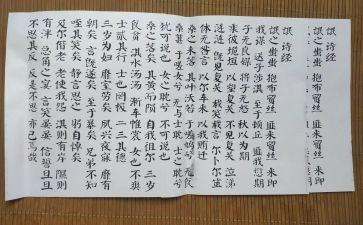 氓 诗经
氓之蚩蚩 抱布贸丝 匪来贸丝 来即
氓 诗经
氓之蚩蚩 抱布贸丝 匪来贸丝 来即
我谋 送子涉淇 至于顿丘 匪我愆期
子无良媒 将子无怒 秋以为期
乘彼垝垣 以望复关 不见复关 泣涕
涟涟 既见复关 载笑载言 尔卜尔筮
体无咎言 以尔车来 以我贿迁
桑之未落 其叶沃若 于嗟鸠兮 无食
桑葚 于嗟女兮 无与士耽 士之耽兮
犹可说也 女之耽兮 不可说也
桑之落矣 其黄而陨 自我徂尔 三岁
食贫 淇水汤汤 渐车帷裳 女也不爽
士贰其行 士也罔极 二三其德
三岁为妇 靡室劳矣 夙兴夜寐 靡有
朝矣 言既遂矣 至于暴矣 兄弟不知
咥其笑矣 静言思之 躬自悼矣
及尔偕老 老使我怨 淇则有岸 隰则
有泮 总角之宴 言笑晏晏 信誓旦旦
不思其反 反是不思 亦已焉哉